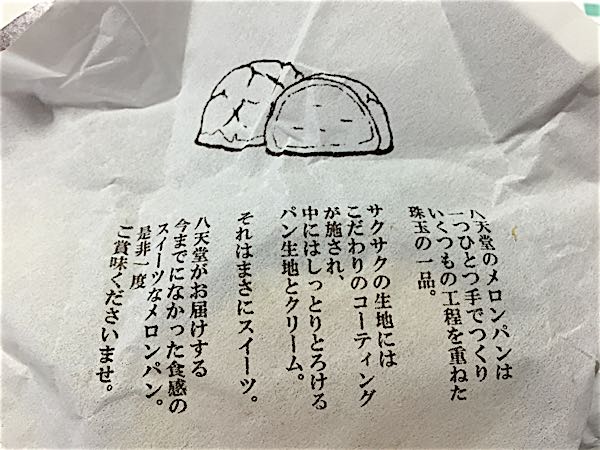 八天堂のメロンパンは
一つひとつ手でつくり
いくつもの工程を重ねた
珠玉の一品。
サクサクの生地には
こだわりのコーティング
が施され、
中にはしっとりとろける
パン生地とクリーム。
それはまさにスイーツ。
八天堂がお届けする
今までになかった食感の
スイーツなメロンパン。
是非一度
ご賞味くださいませ。